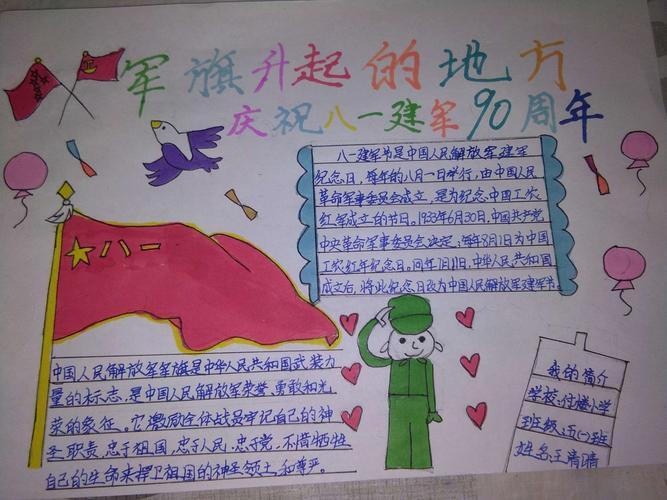 军旗升起的地方
庆祝八一建军90周年
八一建军节是中国人民解放军建军
纪念日，每年的八月一日举行，由中国人民
革命军事委员会成立，是为纪念中国工农
红军成立的节日。1933年6月30日，中国共产党
中央革命军事委员会决定：每年8月1日为中国
工农红军纪念日。同年7月11日，中华人民共和国
成立后，将此纪念日改为中国人民解放军建军节
八一
中国人民解放军军旗是中华人民共和国武装力
量的标志，是中国人民解放军荣誉，勇敢和光
荣的象征。它激励全体战员牢记自己的神
圣职责，忠于祖国，忠于人民，忠于党，不惜牺牲
自己的生命来捍卫祖国的神圣领土和尊严。
我的简介
学校：付楼小学
班级：五(一)班
姓名：王清清